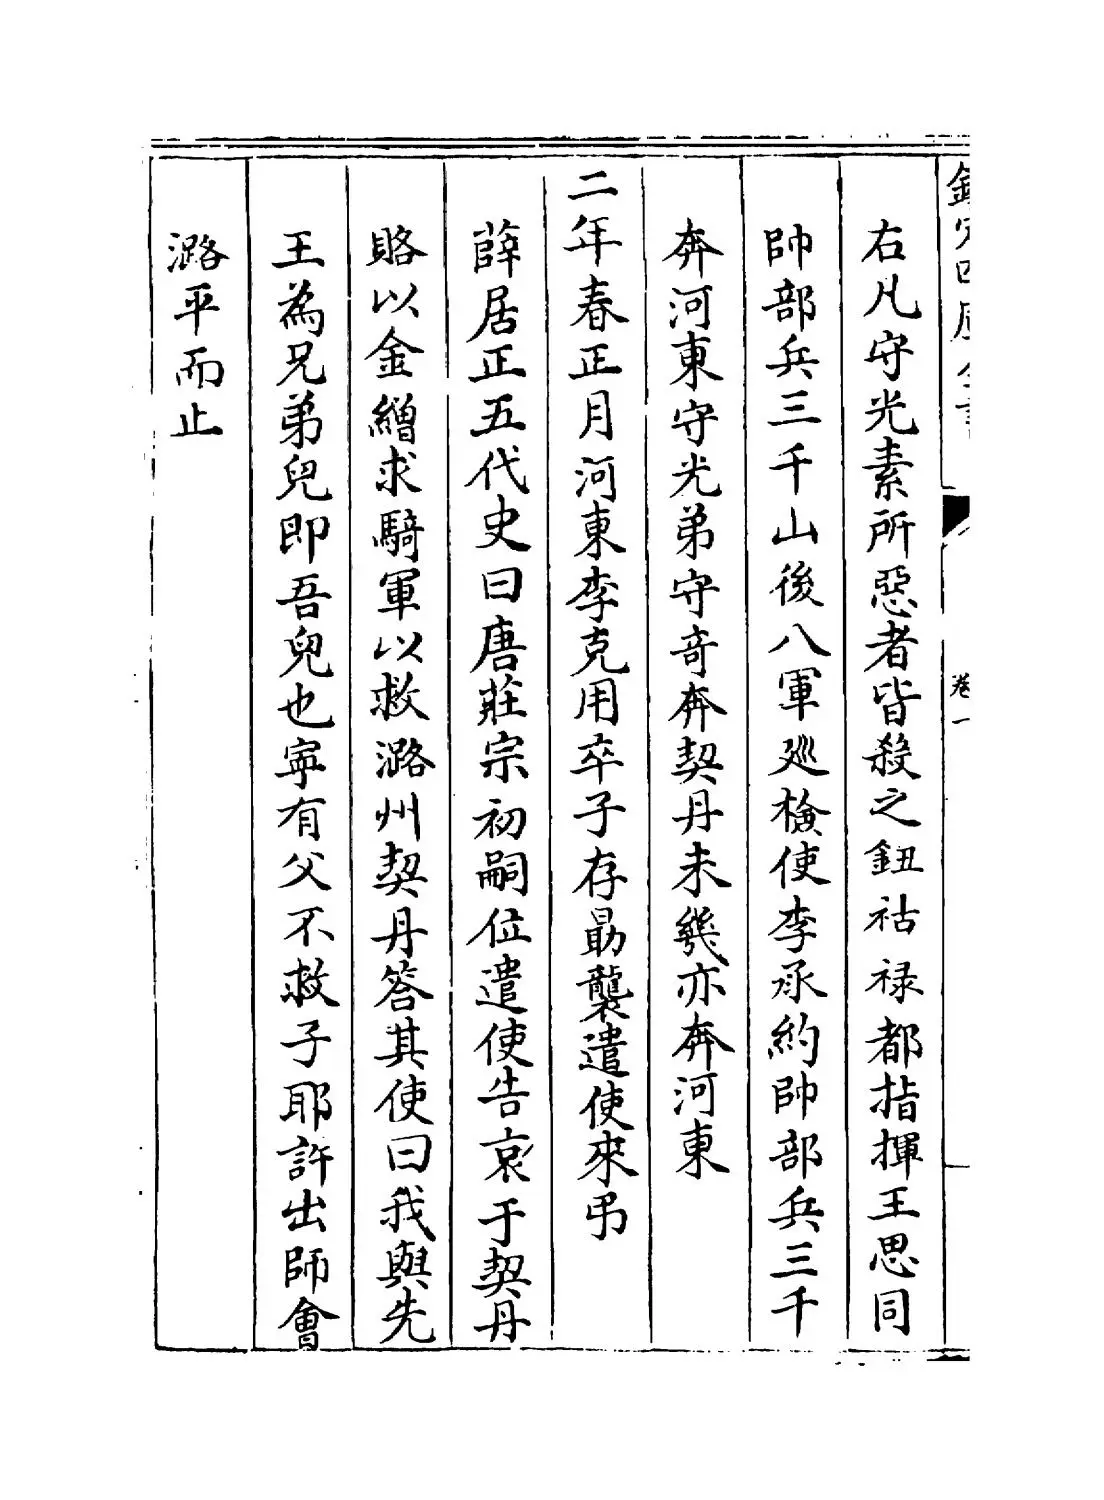 欽定四庫全書
卷一
右凡守光素所惡者皆殺之鈕祜禄都指揮王思同
帥部兵三千山後八軍廵檢使李承約帥部兵三千
奔河東守光弟守竒奔契丹未幾亦奔河東
二年春正月河東李克用卒子存勗襲遣使來弔
薛居正五代史曰唐莊宗初嗣位遣使告哀于契丹
賂以金繒求騎軍以救潞州契丹答其使曰我與先
王為兄弟兒即吾兒也寧有父不救子耶許出師會
潞平而止